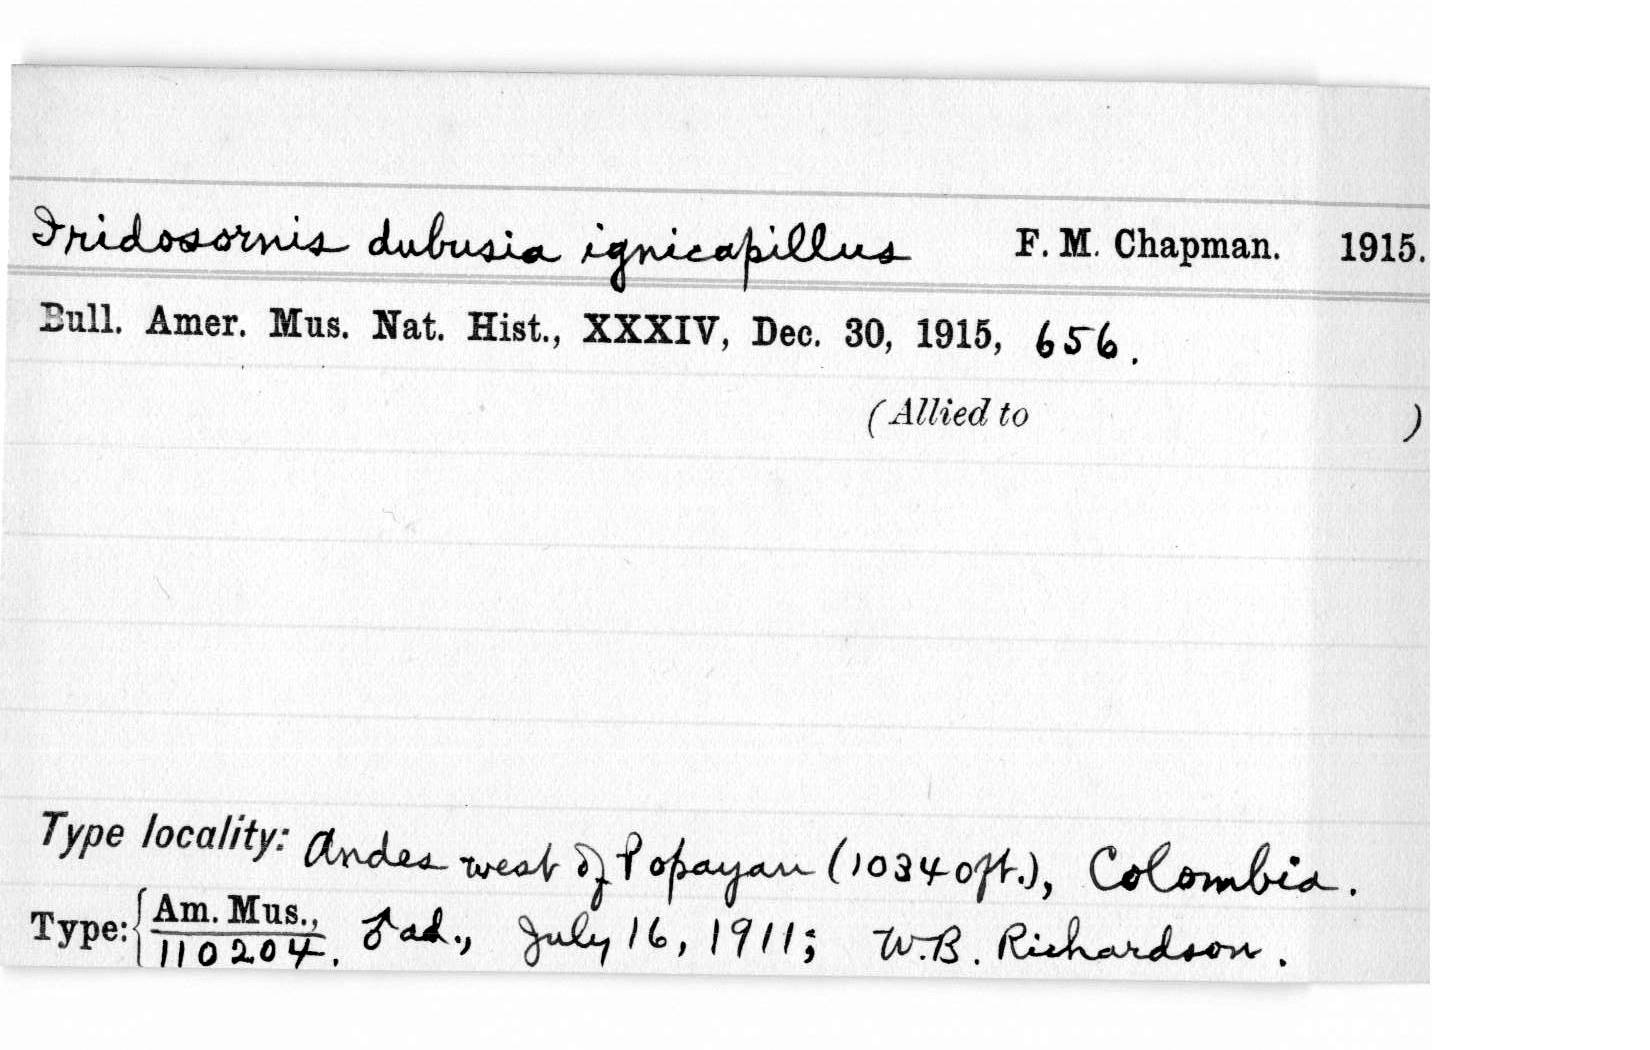 Iridosornis dubusia ignicapillus F. M. Chapman. 1915.
Bull. Amer. Mus. Nat. Hist., XXXIV, Dec. 30, 1915, 656.
(Allied to )
Type locality: Andes west of Popayan (10340ft.), Colombia.
Type: { Am. Mus., 110204. ♂ ad., July 16, 1911; W.B. Richardson.